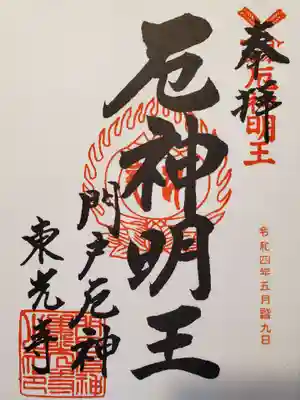 奉拝
厄神明王
令和四年五月廿九日
厄神明王
門戸厄神
東光寺